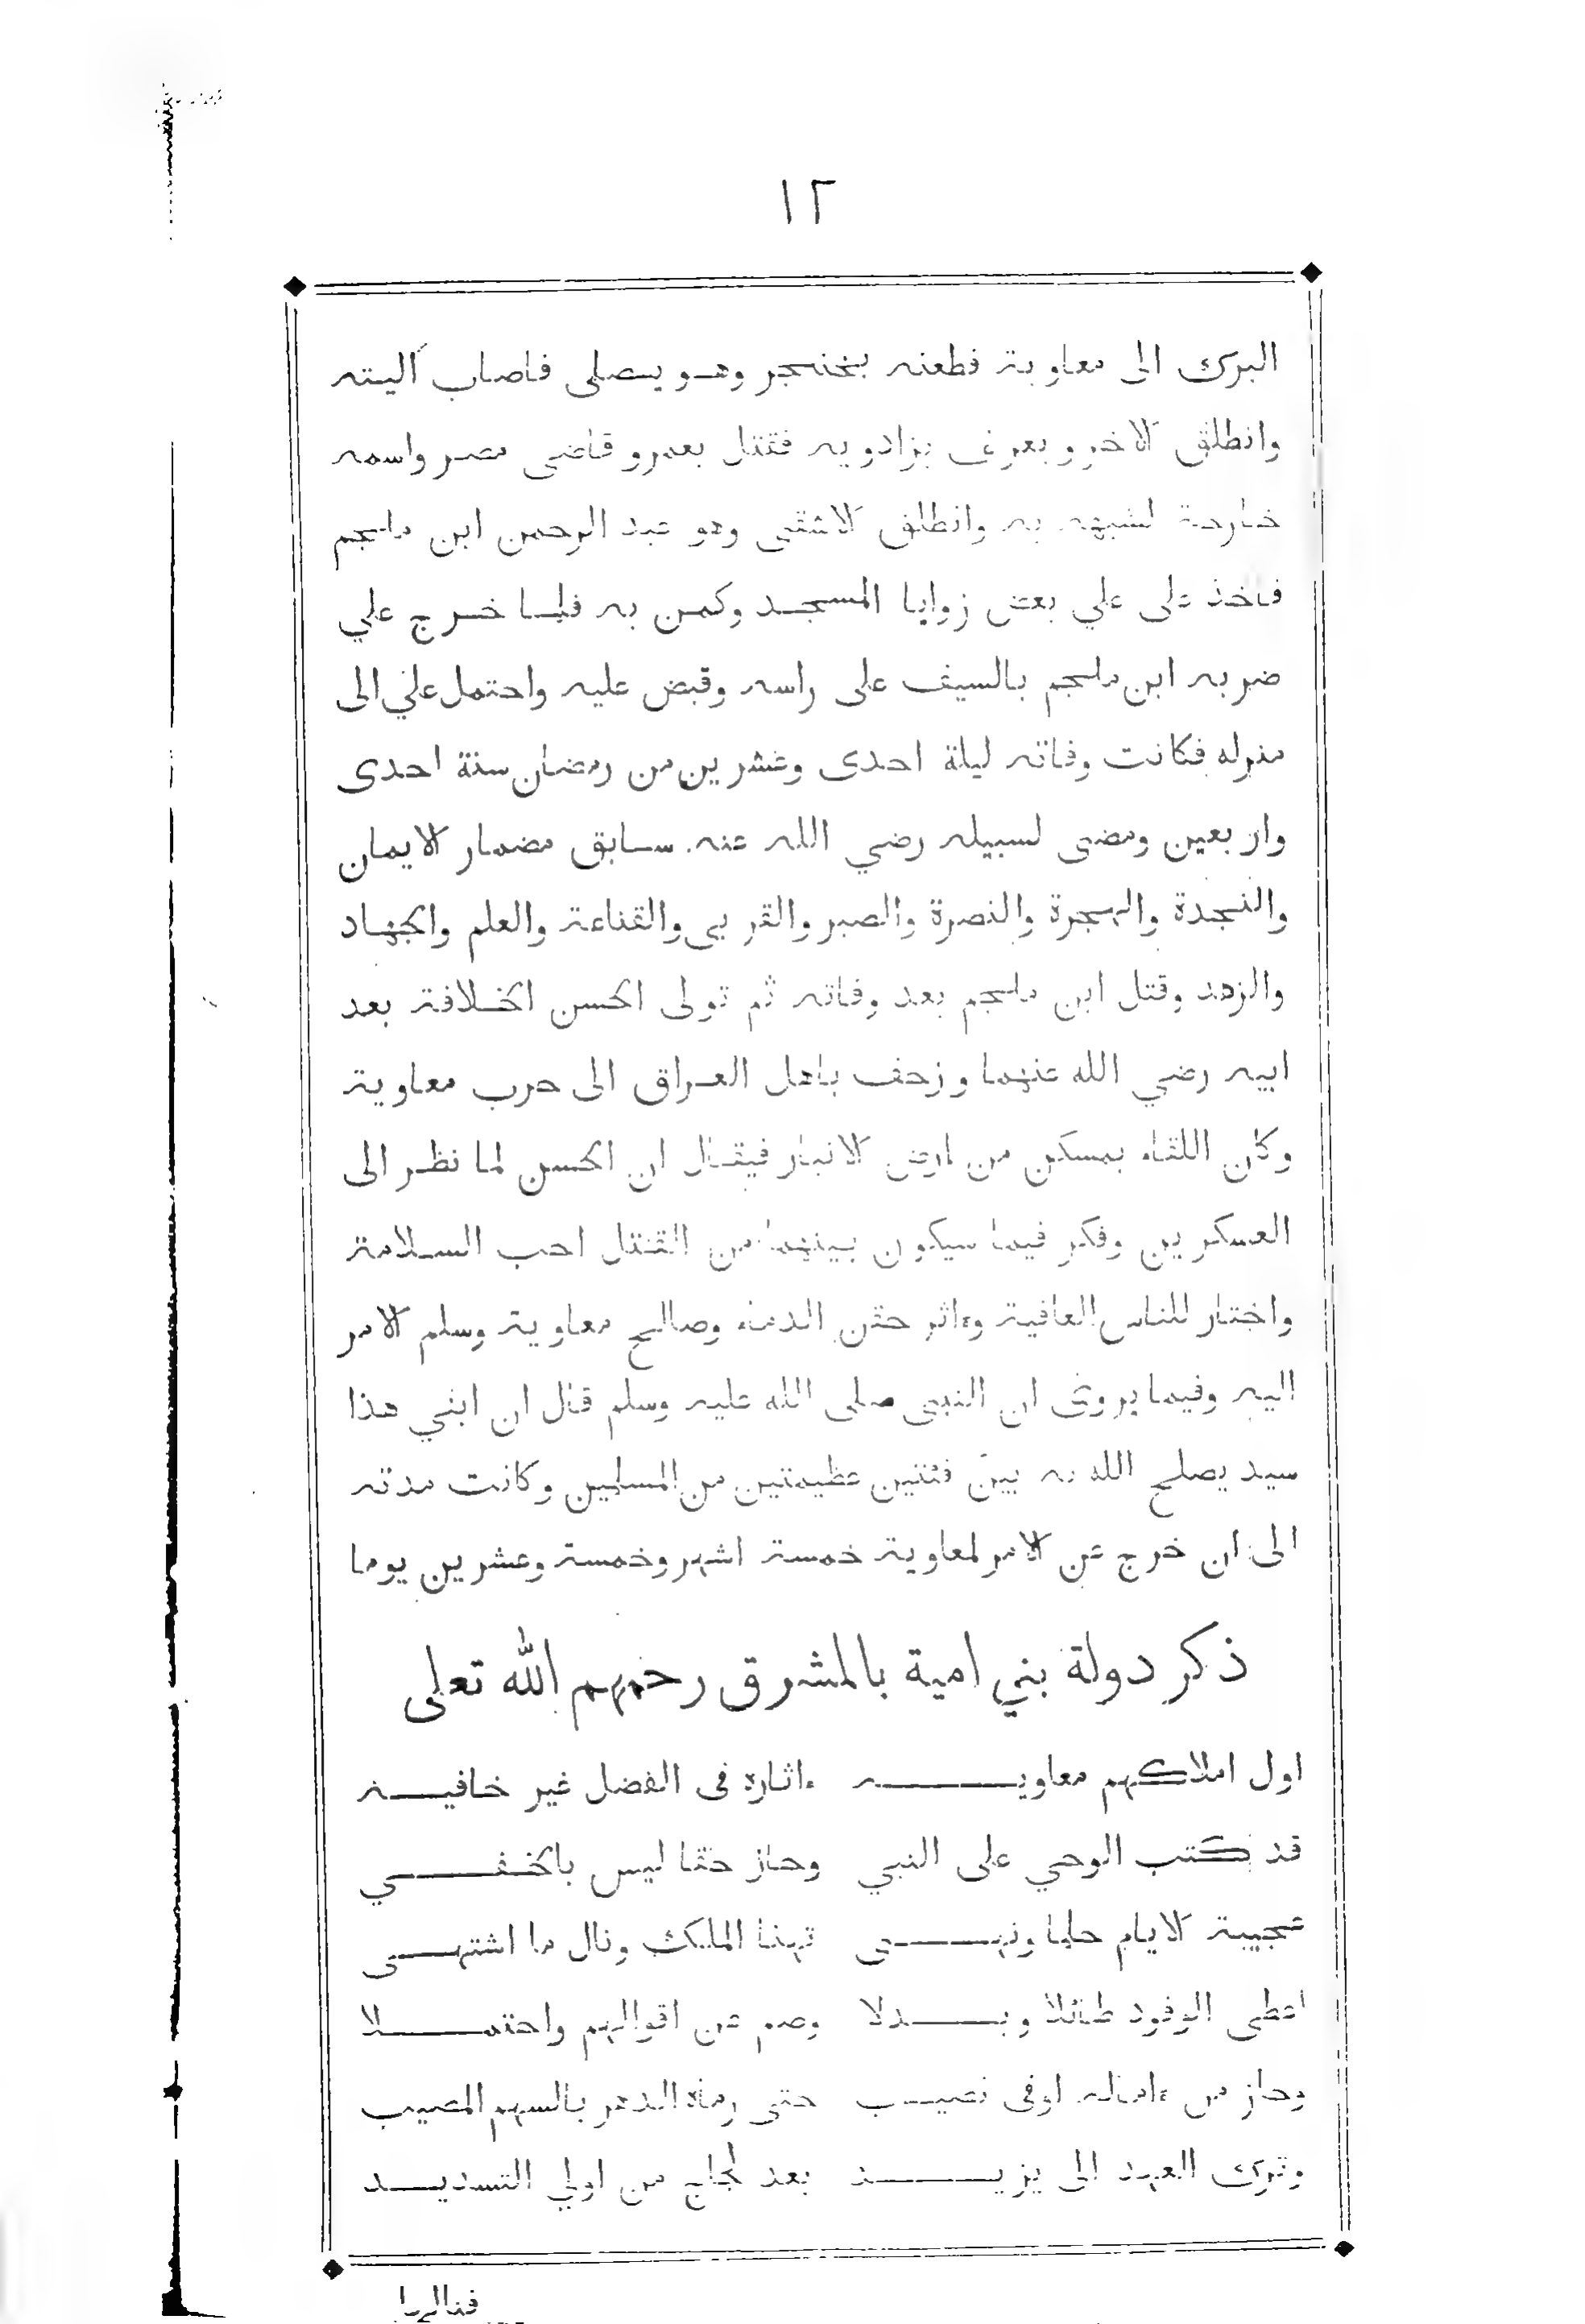 ١٢
البرك الى معاوية فطعنه بخنجر وهو يصلى فاصاب اليته
وانطلق الاخر و يعرف بزادويه فقتل بعمرو قاضى مصر واسمه
خارجة لشبهه به وانطلق الاشقى وهو عبد الرحمن ابن ملجم
فاخذ على علي بعض زوايا المسجد وكمن به فلما خرج علي
ضربه ابن ملجم بالسيف على راسه وقبض عليه واحتمل علي الى
منزله فكانت وفاته ليلة احدى وعشرين من رمضان سنة احدى
واربعين ومضى لسبيله رضي الله عنه. سابق مضمار الايمان
والنجدة والهجرة والنصرة والصبر والقربى والقناعة والعلم والجهاد
والزهد وقتل ابن ملجم بعد وفاته ثم تولى الحسن الخلافة بعد
ابيه رضي الله عنهما وزحف باهل العراق الى حرب معاوية
وكان اللقاء بمسكن من ارض الانبار فيقال ان الحسن لما نظر الى
العسكرين وفكر فيما سيكون بينهما من القتل احب السلامة
واختار للناس العافية وءاثر حقن الدماء وصالح معاوية وسلم الامر
اليه وفيما يروى ان النبى صلى الله عليه وسلم قال ان ابني هذا
سيد يصلح الله به بين فئتين عظيمتين من المسلمين وكانت مدته
الى ان خرج عن الامر لمعاوية خمسة اشهر وخمسة وعشرين يوما
ذكر دولة بني امية بالمشرق رحمهم الله تعلى
اول املاكهم معاويه ءاثاره فى الفضل غير خافيه
قد كتب الوحي على النبي وحاز حقا ليس بالخفي
عجيبة الايام حلما ونهى تهنا الملك ونال ما اشتهى
اعطى الوفود طائلا وبدلا وصم عن اقوالهم واحتملا
وحاز من ءاماله اوفى نصيب حتى رماه الدهر بالسهم المصيب
وترك العهد الى يزيد بعد لجاج من اولي التسديد